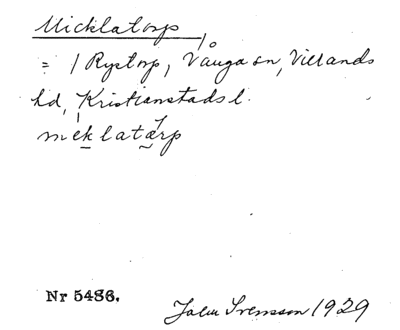 Micklatorp
= 1 Rystorp, Vånga sn, Villands
hd, Kristianstads l.
meklatærp
Nr 5486.
Jalm Svensson 1929